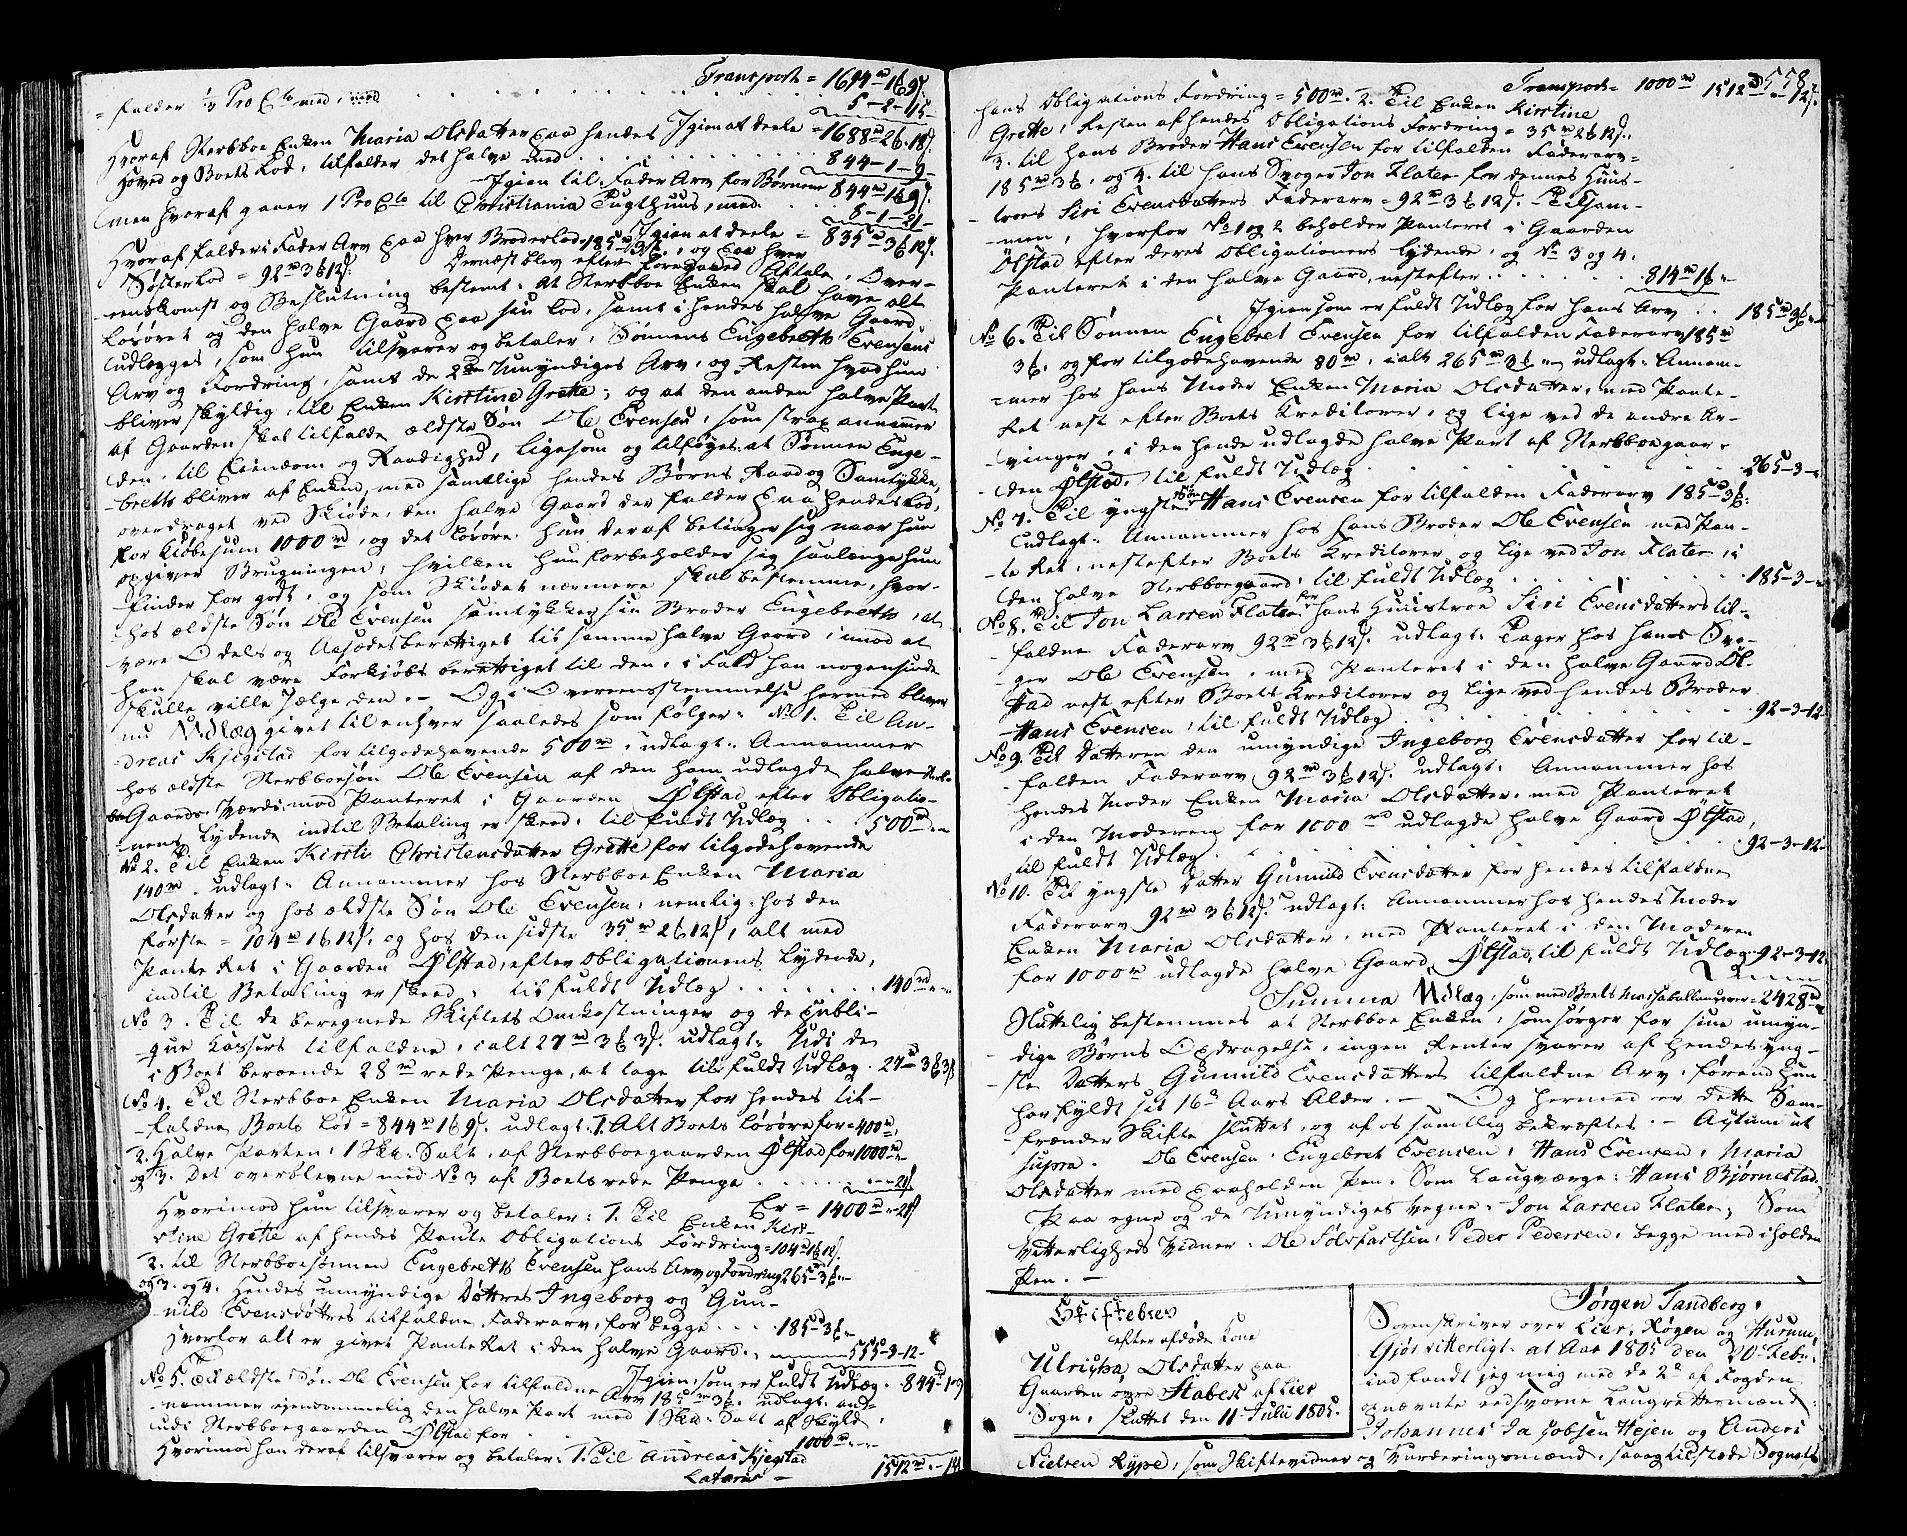 Transport = 1694 rd 1 6 9 s.
falder ½ Pro Cto med,
5 - 2 - 15 -
Igien at deele = 1688 rd 2 6. 18 s.
Hvoraf Sterbboe Enken Maria Olsdatter paa hendes
Hoved og Boets Lod, tilfalder det halve med 844 - 1 - 9 -
Igien til Fader Arv for Børnene 844 rd 1 6 9 s.
men hvoraf gaaer 1 Pro Cto til Christiania Tugthuus, med 8 - 1 - 21 -
Igien at deele = 835 rd 3 6 12 s.
Hvoraf falder i Fader Arv paa hver Broderlod 185 rd 3 6, og paa hver
Søsterlod = 92 rd 3 6 12 s. Dernæst blev efter foregaaed Aftale, Over-
eenskomst og Beslutning bestemt: At Sterbboe Enken skal have alt
Løsøret og den halve Gaard paa sin Lod, samt i hendes halve Gaard
udlægges, som hun tilsvarer og betaler, Sønnens Engebreth Evensens
Arv og Fordring, samt de 2de Umyndiges Arv, og Resten hvad hun
bliver skyldig, til Enken Kirstine Grette; og at den anden halve Part
af Gaarden skal tilfalde ældste Søn Ole Evensen, som strax annammer
den til Eiendom og Raadighed, ligesom og tilføyes: at Sønnen Enge-
breth bliver af Enken, med samtlige hendes Børns Raad og Samtykke,
overdraget ved Skiøde, den halve Gaard der falder paa hendes Lod,
for Kiøbesum 1000 rd, og det Løsøre hun deraf betinger sig naar hun
opgiver Brugningen, hvilken hun forbeholder sig saalænge hun
finder for godt, og som Skiødet nærmere skal bestemme, hvor-
hos ældste Søn Ole Evensen samtykker sin Broder Engebreth, at
være Odels og Aasædesberettiget til samme halve Gaard, imod at
han skal være Forkjøbsberettiget til den, i Fald han nogensinde
skulle ville sælge den. - Og i Overeensstemmelse hermed bliver
nu Udlæg givet til enhver saaledes som følger: No. 1. Til An-
dreas Kjegstad for tilgodehavende 500 rd, udlagt: Annammer
hos ældste Sterbboesøn Ole Evensen af den ham udlagde halve
Gaards Værdi, med Panteret i Gaarden Ølstad efter Obligatio-
nens Lydende indtil Betaling er skeed, til fuldt Udlæg 500 rd
No 2. Til Enken Kirsti Christensdatter Grette for tilgodehavende
140 rd. udlagt: Annammer hos Sterbboe Enken Maria
Olsdatter og hos ældste Søn Ole Evensen, nemlig: hos den
første = 104 rd 1 6 12 s, og hos den sidste 35 rd 2 6 12 s, alt med
Pante Ret i Gaarden Ølstad, efter Obligationens Lydende,
indtil Betaling er skeed, til fuldt Udlæg 140 rd
No 3. Til de beregnede Skiftets Omkostninger og de publi-
que Cassers tilfaldne, ialt 27 rd 3 6 3 s. udlagt: Udi de
i Boet beroende 28 rd rede Penge, at tage til fuldt Udlæg. 27 - 3 6 3 s
No. 4. Til Sterbboe Enken Maria Olsdatter for hendes til-
faldne Boets Lod = 844 rd 1 6 9 s. udlagt: 1. Alt Boets Løsøre for = 400 rd,
2. Halve Parten, 1 Sk. Salt, af Sterbboegaarden Ølstad for 1000 rd
og 3. Det overblevne med No 3 af Boets rede Penge 21
Er = 1400 rd 21
Hvorimod hun tilsvarer og betaler: 1. Til Enken Kirs-
tine Grette af hendes Pante Obligations Fordring = 104 rd 1 6 12 s.
2. til Sterbboesønnen Engebreth Evensen hans Arv og Fordring 265 - 3 6
og 3. og 4. Hendes umyndige Døttres Ingeborg og Gun-
nild Evensdøttres tilfaldne Faderarv, for begge 185 - 3 6
Hvorfor alt er givet PanteRet i den halve Gaard. 555 - 3 - 12 -
Igien, som er fuldt Udlæg. 844 - 1 - 9
No 5. Til ældste Søn Ole Evensen for tilfaldne Arv 185 rd 3 6. udlagt: an-
nammer eiendommelig den halve Part med 1 Sk. Salt af Skyld
udi Sterbboegaarden Ølstad for 1000 rd
Hvorimod han deraf tilsvarer og betaler: 1. Til Andreas Kjegstad
Lateris - 1512 rd

558.
Transport = 1000 rd 1512 rd - 12 s.
hans Obligations Fordring = 500 rd. 2. Til Enken Kirstine
Grette, Resten af hendes Obligations Fordring = 35 rd 2 6 12 s.
3. til hans Broder Hans Evensen for tilfalden Faderarv =
185 rd 3 6, og 4. til hans Svoger Jon Flater for dennes Huus-
troes Siri Evensdatters Faderarv = 92 rd 3 6 12 s. Tilsam-
men, hvorfor No 1 og 2 beholder Panteret i Gaarden
Ølstad efter deres Obligationers Lydende, og No 3 og 4.
Panteret i den halve Gaard, nestefter 814 rd 1 6
Igien som er fuldt Udlæg for hans Arv 185 rd 3 6
No 6. Til Sønnen Engebret Evensen for tilfalden Faderarv 185 rd
3 6. og for tilgodehavende 80 rd, ialt 265 rd 3 6 udlagt: Annam-
mer hos hans Moder Enken Maria Olsdatter, med Pante-
Ret nest efter Boets Kreditorer, og lige ved de andre Ar-
vinger, i den hende udlagde halve Part af Sterbboegaar-
den Ølstad, til fuldt Udlæg 265 - 3 -
No 7. Til yngste Søn Hans Evensen for tilfalden Faderarv 185 rd 3 6.
Udlagt: Annammer hos hans Broder Ole Evensen med Pan-
te Ret, nestefter Boets Kreditorer og lige ved Jon Flater, i
den halve Sterbboegaard, til fuldt Udlæg 185 - 3 -
No 8. Til Jon Larsen Flater for hans Huustroe Siri Evensdatters til-
faldne Faderarv 92 rd 3 6 12 s. udlagt: Tager hos hans Svo-
ger Ole Evensen, med Panteret i den halve Gaard Øl-
stad nest efter Boets Kreditorer og lige ved hendes Broder
Hans Evensen, til fuldt Udlæg 92 - 3 - 12 -
No 9. Til Datteren den umyndige Ingeborg Evensdatter for til-
falden Faderarv 92 rd 3 6 12 s. udlagt: Annammer hos
hendes Moder Enken Maria Olsdatter, med Panteret
i den Moderen for 1000 rd udlagde halve Gaard Ølstad,
til fuldt Udlæg 92 - 3 - 12 -
No 10. Til yngste Datter Gunnild Evensdatter for hendes tilfaldne
Faderarv 92 rd 3 6 12 s. udlagt: Annammer hos hendes Moder
Enken Maria Olsdatter, med Panteret i den Moderen
for 1000 rd udlagde halve Gaard Ølstad, til fuldt Udlæg 92 - 3 - 12
Summa Udlæg, som med Boets Massa ballancerer = 2428 rd
Sluttelig bestemmes at Sterbboe Enken, som sørger for sine umyn-
dige Børns Opdragelse, ingen Renter svarer af hendes yng-
ste Datters Gunnild Evensdatters tilfaldne Arv, førend hun
har fyldt sit 16de Aars Alder. - Og hermed er dette Sam-
frænder Skifte sluttet, og af os samtlig bekræftes. - Actum ut
supra. Ole Evensen, Engebret Evensen, Hans Evensen, Maria
Olsdatter med paaholden Pen. Som Laugværge: Hans Bjørnestad.
Paa egne og de Umyndiges Vegne: Jon Larsen Flater, Som
Vitterligheds Vidner: Ole Solsfastsen, Peder Pedersen, begge med iholden
Pen. -

Skiftebrev
efter afdøde Kone
Ulricha Olsdatter paa
Gaarden øvre Stabek af Lier
Sogn, sluttet den 11 Julii 1805.

Jørgen Tandberg,
Sorenskriver over Lier, Røgen og Hurum,
Gjør vitterligt: at Aar 1805 den 20 Febr.
indfandt jeg mig med de 2de af Fogden
opnævnte eedsvorne Laugrettesmænd:
Johannes Jacobsen Hejen og Anders
Nielsen Rype, som Skiftevidner og Vurderingsmænd, saa og tilstæde Sognets